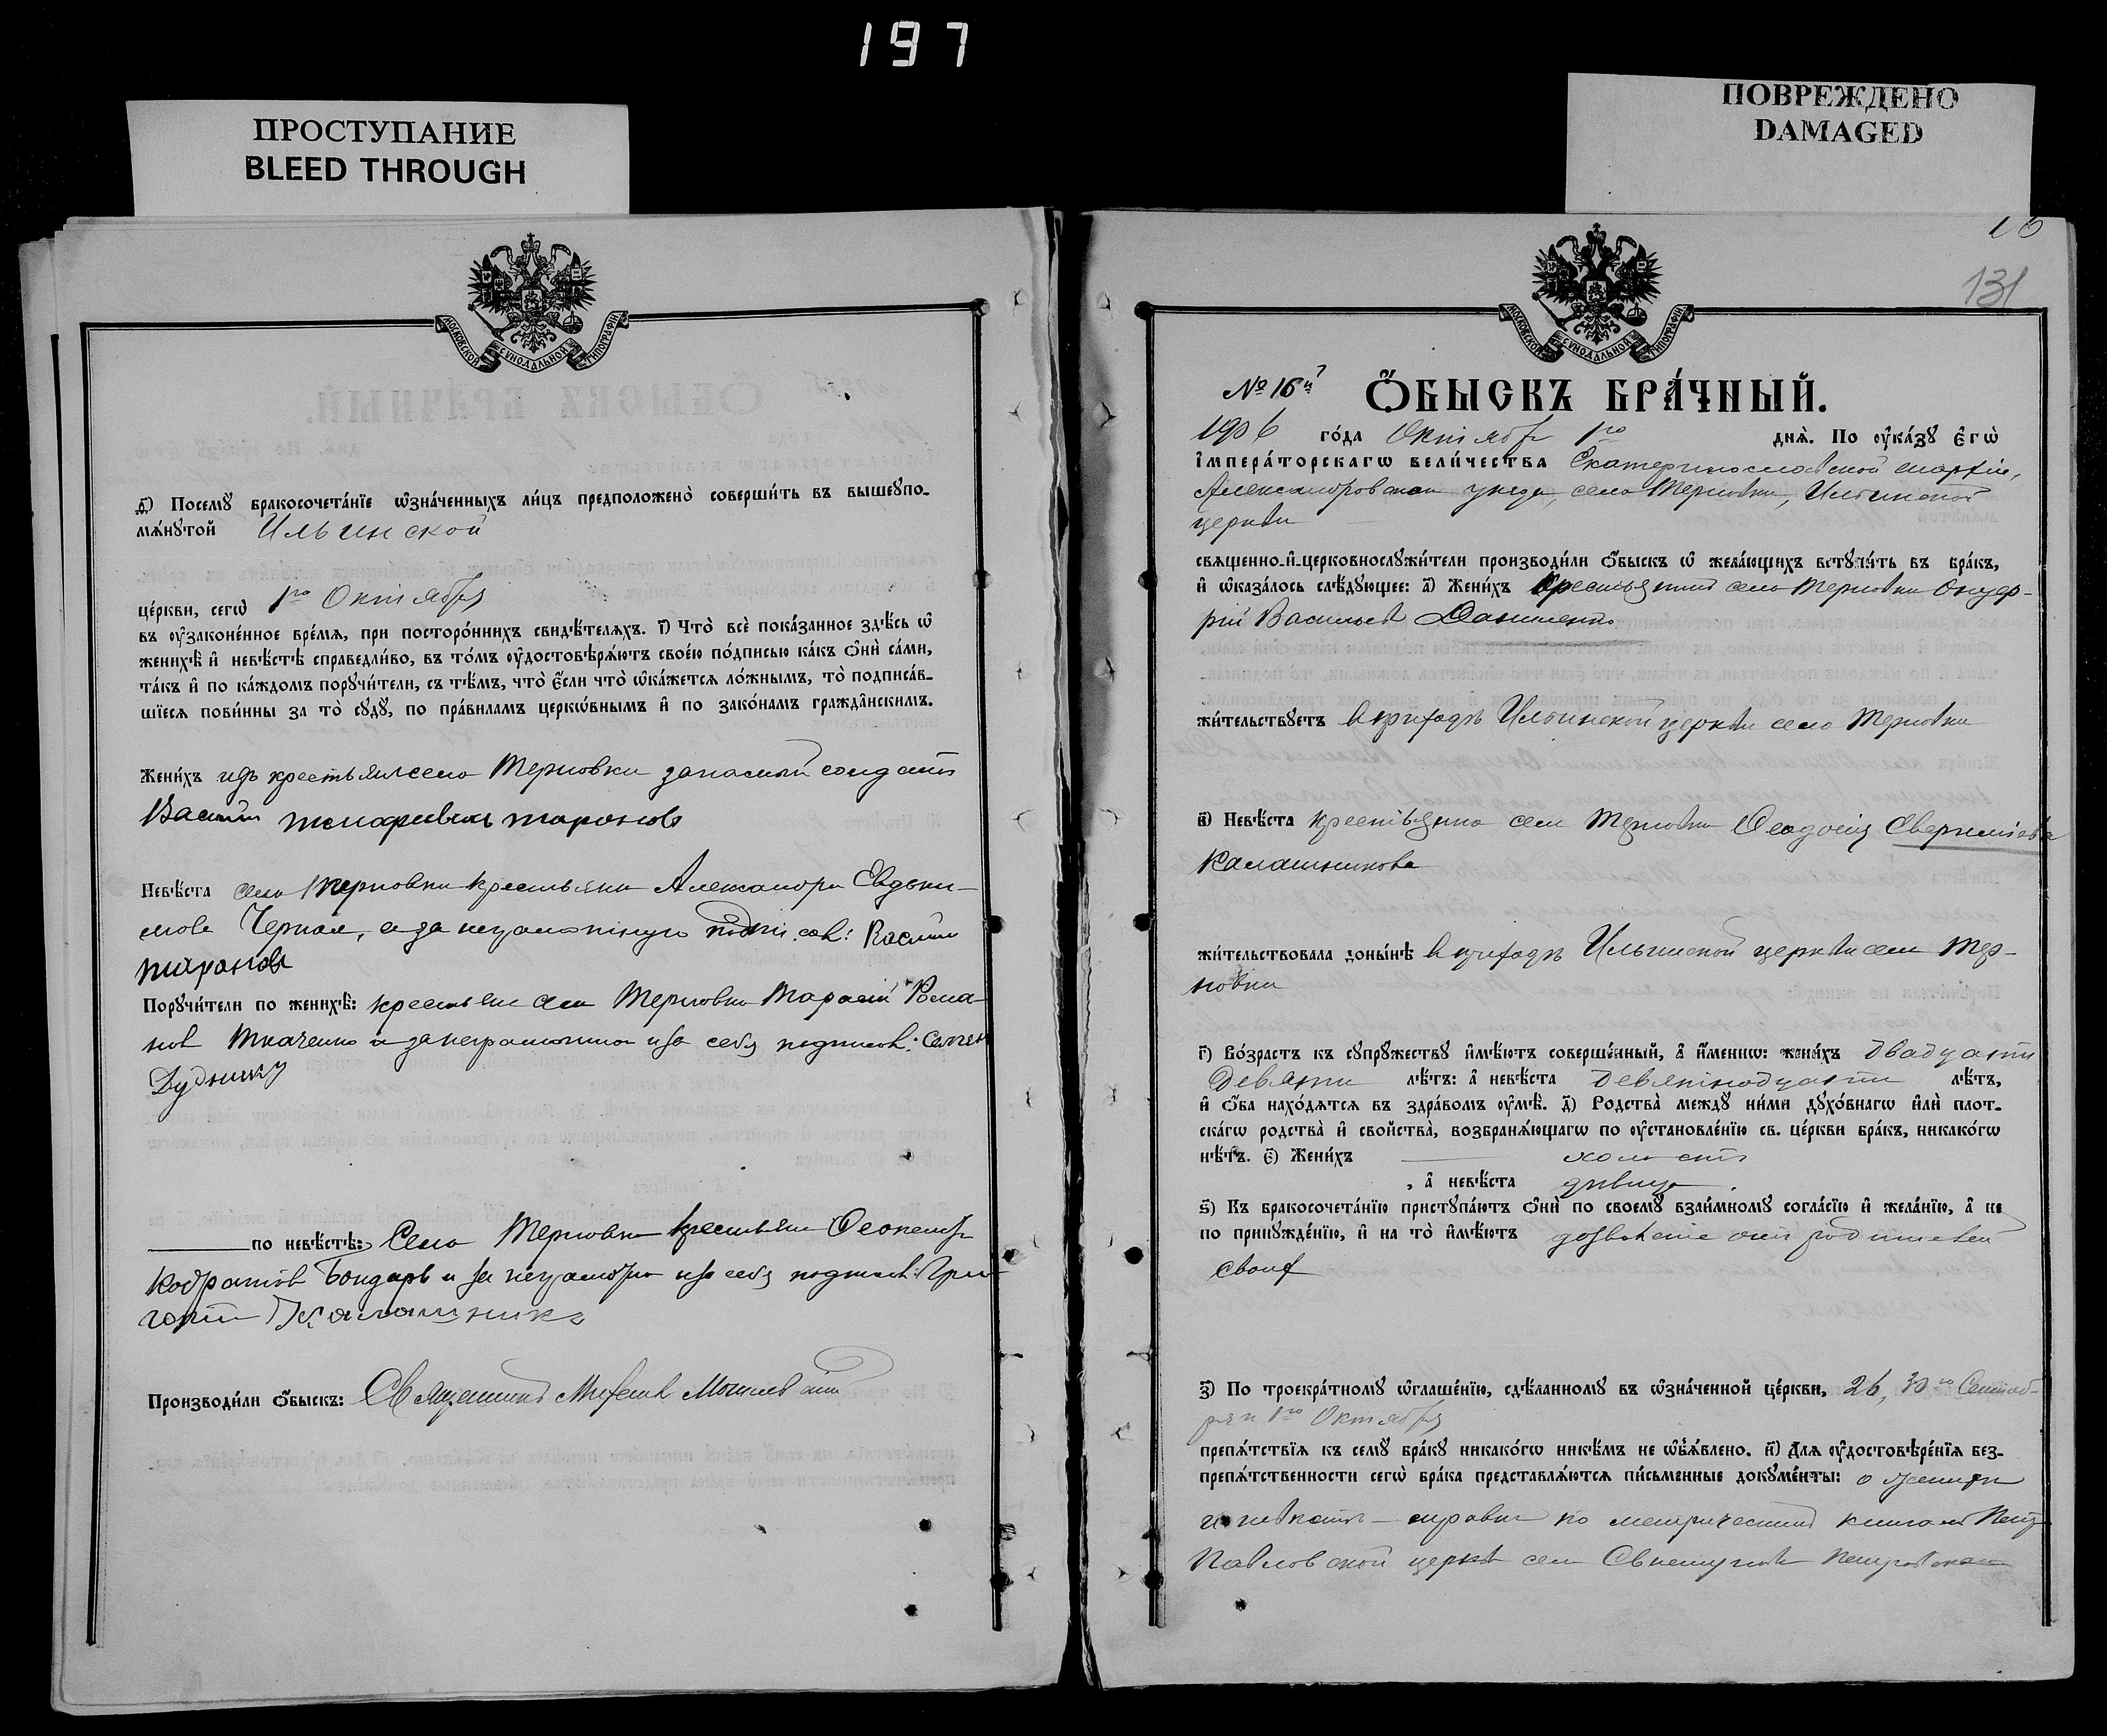 197
ПРОСТУПАНИЕ
BLEED THROUGH
ПОВРЕЖДЕНО
DAMAGED
МОСКОВСКОЙ СѴНОДАЛЬНОЙ ТИПОГРАФІИ
д҃і) Посемꙋ бракосочета́нїе ѡ҆зна́ченныхъ ли́цъ предположено̀ соверши́ть въ вышеꙋпо-
мѧ́нꙋтой Ильинской
це́ркви, сегѡ̀ 1го Октября
въ ᲂу҆законе́нное вре́мѧ, при посторо́ннихъ свидѣ́телѧхъ. і҃) Что̀ всѐ пока́занное здѣ́сь ѡ҆
женихѣ̀ и҆ невѣ́стѣ справедли́во, въ то́мъ ᲂу҆достовѣрѧ́ютъ свое́ю по́дписью ка́къ ѻ҆нѝ са́ми,
та́къ и҆ по ка́ждомъ порꙋчи́тели, съ тѣ́мъ, что̀ є҆́сли что̀ ѡ҆ка́жетсѧ ло́жнымъ, то̀ подписа́в-
шїесѧ пови́нны за то̀ сꙋдꙋ̀, по пра́виламъ церкѡ́внымъ и҆ по зако́намъ гражда́нскимъ.
Жени́хъ изъ крестьян села Терновки запасный солдатъ
Василий Таранов
Невѣ́ста села Терновки крестьянка Александра Евдоки-
мова Черная, а за неграмотную подписов: Васили
Таранов
Порꙋчи́тели по женихѣ̀: крестьяне села Терновки Тарасий Рома-
нов Ткаченко а за неграмотного и за себя подписов: Семен
Дудник
по невѣ́стѣ: Села Терновки крестьянин
Кодратов Бондарь и за неграмотного и за себя подписов: Гри-
горий Калашник
Производи́ли ѻ҆́быскъ: Священникъ Михаил
131
№ 16й
Ѻ҆́БЫСКЪ БРА́ЧНЫЙ.
1906 го́да Октября 1го днѧ̀. По ᲂу҆ка́зꙋ є҆гѡ̀
і҆мпера́торскагѡ вели́чества Екатеринославской епархіи,
Александровскаго уезда, села Терновки, Ильинской
церкви
свѧщенно-и҆-церковнослꙋжи́тели производи́ли ѻ҆́быскъ ѡ҆ жела́ющихъ встꙋпи́ть въ бра́къ,
и҆ ѡ҆каза́лось слѣ́дꙋющее: а҃) Жени́хъ крестьянинъ села Терновки Онуф-
рий Васильев Даниленко
жи́тельствꙋетъ в приходѣ Ильинской церкви села Терновки
в҃) Невѣ́ста крестьянка села Терновки Феодосия
Калашникова
жи́тельствовала доны́нѣ в приходѣ Ильинской церкви села Тер-
новки
г҃) Во́зрастъ къ сꙋпрꙋ́жествꙋ и҆мѣ́ютъ соверше́нный, а҆ и҆́меннѡ: жени́хъ двадцати
девяти лѣ́тъ: а҆ невѣ́ста девятнадцати лѣ́тъ,
и҆ ѻ҆́ба нахо́дѧтсѧ въ здра́вомъ ᲂу҆мѣ̀. д҃) Родства̀ междꙋ̀ ни́ми дꙋхо́внагѡ и҆лѝ плот-
ска́гѡ родства̀ и҆ сво́йства, возбранѧ́ющагѡ по ᲂу҆становле́нїю св. це́ркви бра́къ, никако́гѡ
нѣ́тъ. є҃) Жени́хъ холостъ
, а҆ невѣ́ста дѣвица.
ѕ҃) Къ бракосочета́нїю пристꙋпа́ютъ ѻ҆нѝ по своемꙋ̀ взаи́мномꙋ согла́сїю и҆ жела́нїю, а҆ не
по принꙋжде́нїю, и҆ на то̀ и҆мѣ́ютъ дозволение от родителей
своих
з҃) По троекра́тномꙋ ѡ҆глаше́нїю, сдѣ́ланномꙋ въ ѡ҆зна́ченной це́ркви, 26, 30го Сентяб-
ря и 1го Октября
препѧ́тствїѧ къ семꙋ̀ бра́кꙋ никако́гѡ никѣ́мъ не ѡ҆б̾ѧ́влено. и҃) Длѧ ᲂу҆достовѣре́нїѧ без-
препѧ́тственности сегѡ̀ бра́ка представлѧ́ютсѧ пи́сьменные докꙋме́нты: о женихе
и невесте — справки по метрическим книгам Петро
Павловской церкви села